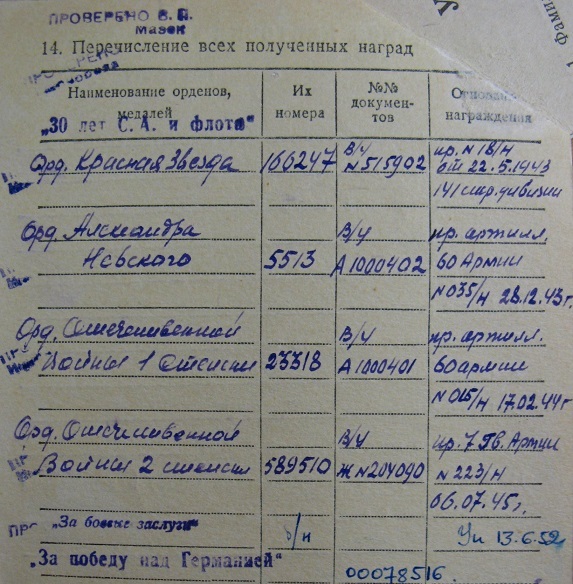 ПРОВЕРЕНО
14. Перечисление всех полученных наград
Наименование орденов, медалей
Их номера
№№ документов
Основание награждения
„30 лет С. А. и флота“
Орд. Красная Звезда 166247 В/ч N515902 пр. N 18/н от 22.5.1943
141 стр. дивизии
Орд. Александра В/ч пр. артилл.
Невского 5513 А 1000402 60 Армии
N035/н 28.12.43г.
Орд. Отечественной В/ч пр. артилл.
Войны 1 степени 23318 А 1000401 60 армии
N 015/н 17.02.44г
Орд. Отечественной В/ч пр. 7 Гв. Армии
Войны 2 степени 589510 Ж N204090 N 223/н
06.07.45г.
„За боевые заслуги“ б/н Ук 13.6.52
„За победу над Германией“ 00078516